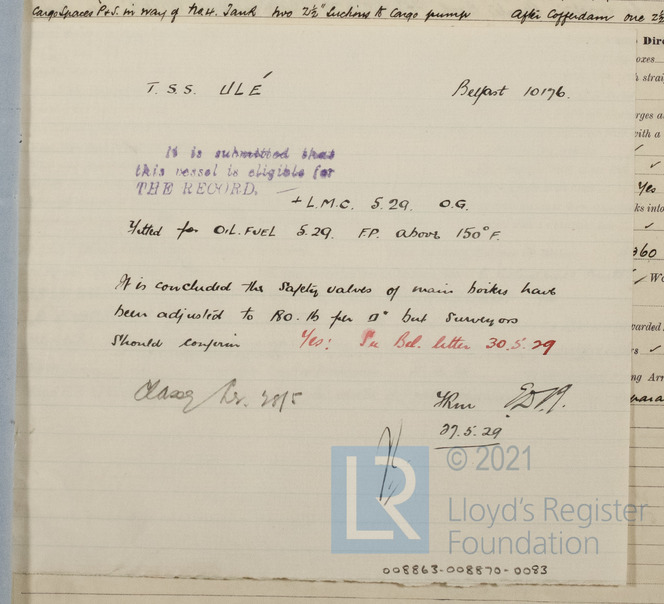 Cargo Spaces P&S. in way of No 4. Tank two 2½" Suctions to Cargo pump After Cofferdam one 2½
Dire
oxes
h strai
T. S. S. ULÉ Belfast 10176.
rges a
with a
It is submitted that
this vessel is eligible for
THE RECORD. —
Yes
+ L.M.C. 5.29. O.G.
ks into
Fitted for OIL FUEL 5.29. F.P. above 150°F.
360
It is concluded the safety valves of main boilers have
been adjusted to 180. lb per □" but Surveyors
should confirm Yes: Per Bel. letter 30.5.29
varded
ng Arr
28/5
27.5.29
© 2021
LR
Lloyd's Register
Foundation
008863-008870-0083